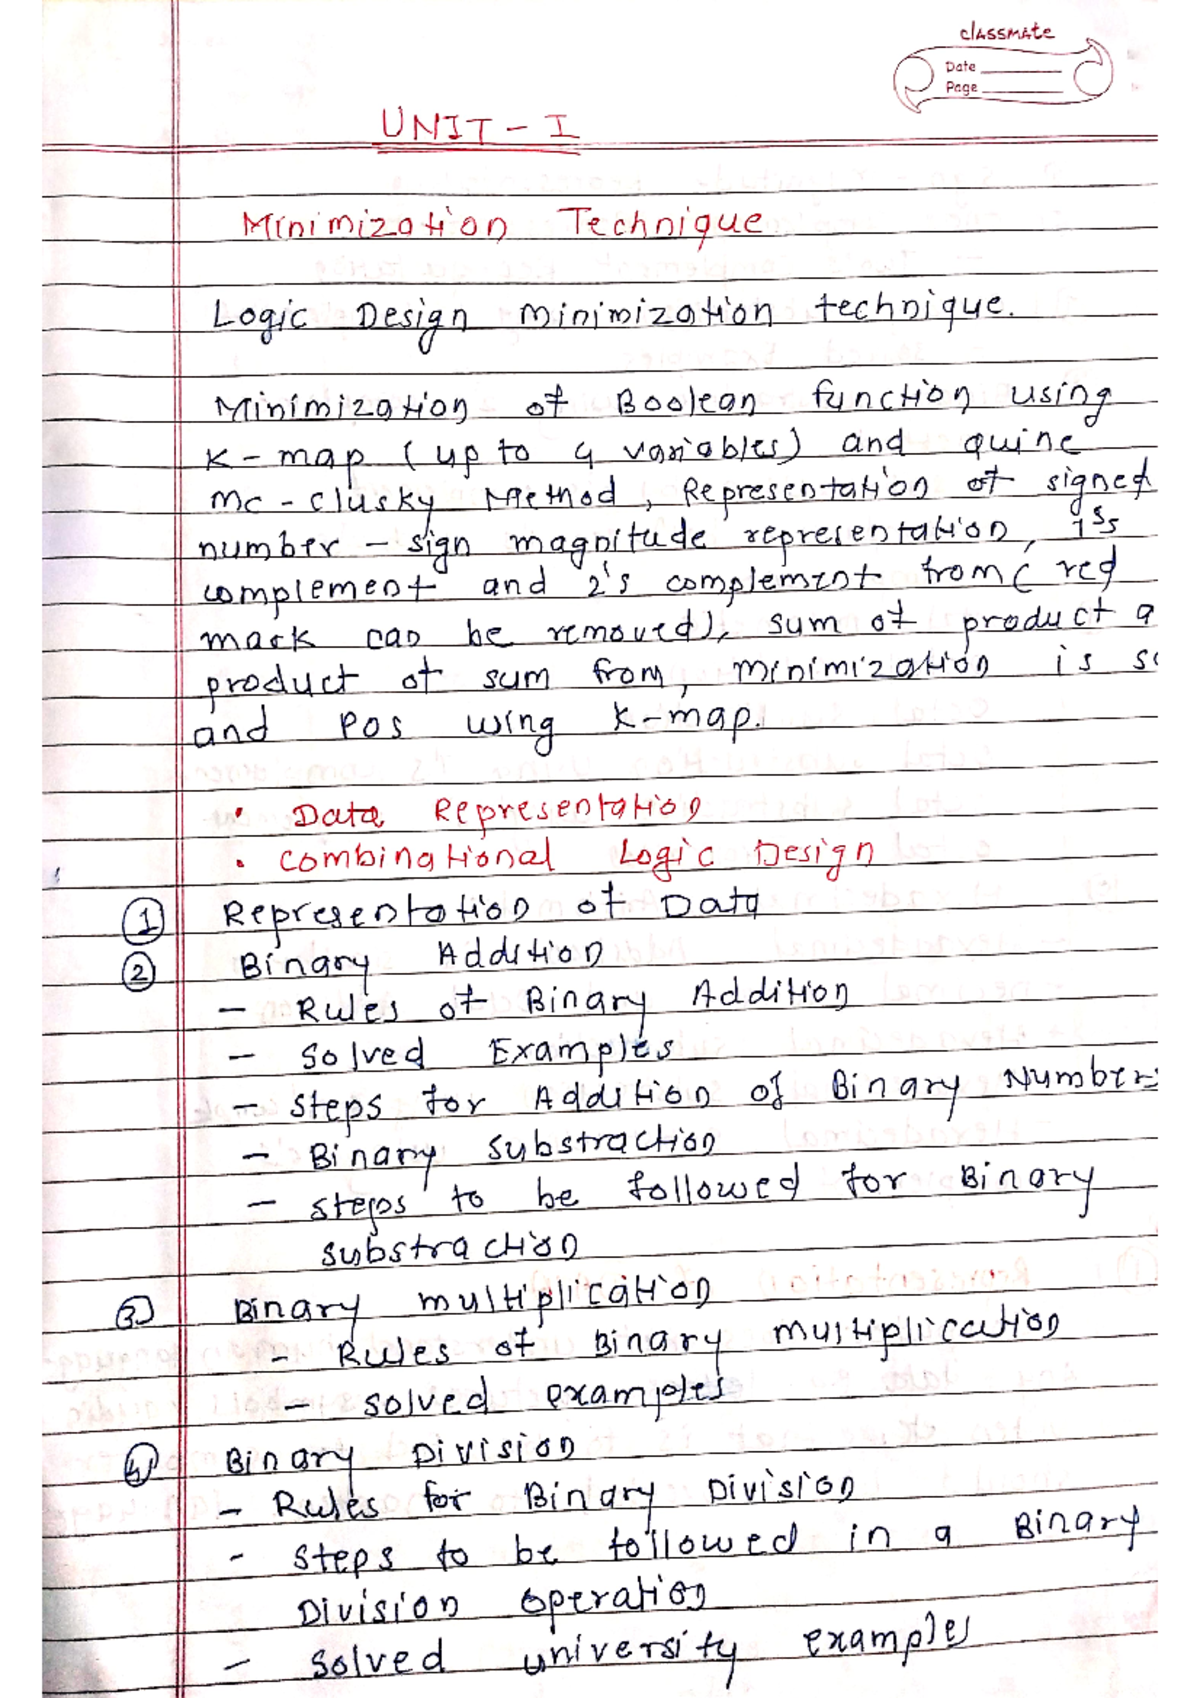 classmate
Date
Page
UNIT - I
Minimization Technique
Logic Design minimization technique.
Minimization of Boolean function using
K - map (up to 4 variables) and quine
mc - clusky Method, Representation of signed
number - sign magnitude representation, 1's
complement and 2's complement from ( red
mark can be removed), sum of product a
product of sum from, minimization is so
and POS using K-map.
• Data Representation
• Combinational Logic Design
1 Representation of Data
2 Binary Addition
- Rules of Binary Addition
- Solved Examples
- Steps for Addition of Binary Number
- Binary substraction
- Steps to be followed for Binary
substraction
3 Binary multiplication
- Rules of Binary multiplication
- solved examples
4 Binary Division
- Rules for Binary Division
- Steps to be followed in a Binary
Division operation
- Solved university examples